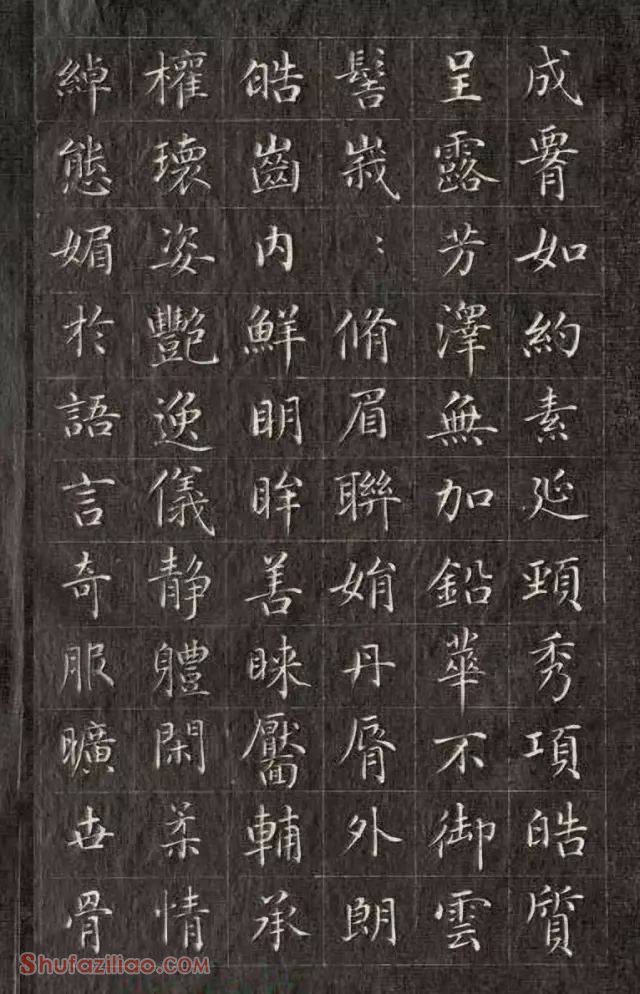 成腰如約素延頸秀項皓質
呈露芳澤無加鉛華不御雲
髻峩〻脩眉聯娟丹脣外朗
皓齒內鮮明眸善睞靨輔承
權瓌姿艷逸儀静軆閑柔情
綽態媚於語言奇服曠世骨
Shufaziliao.com